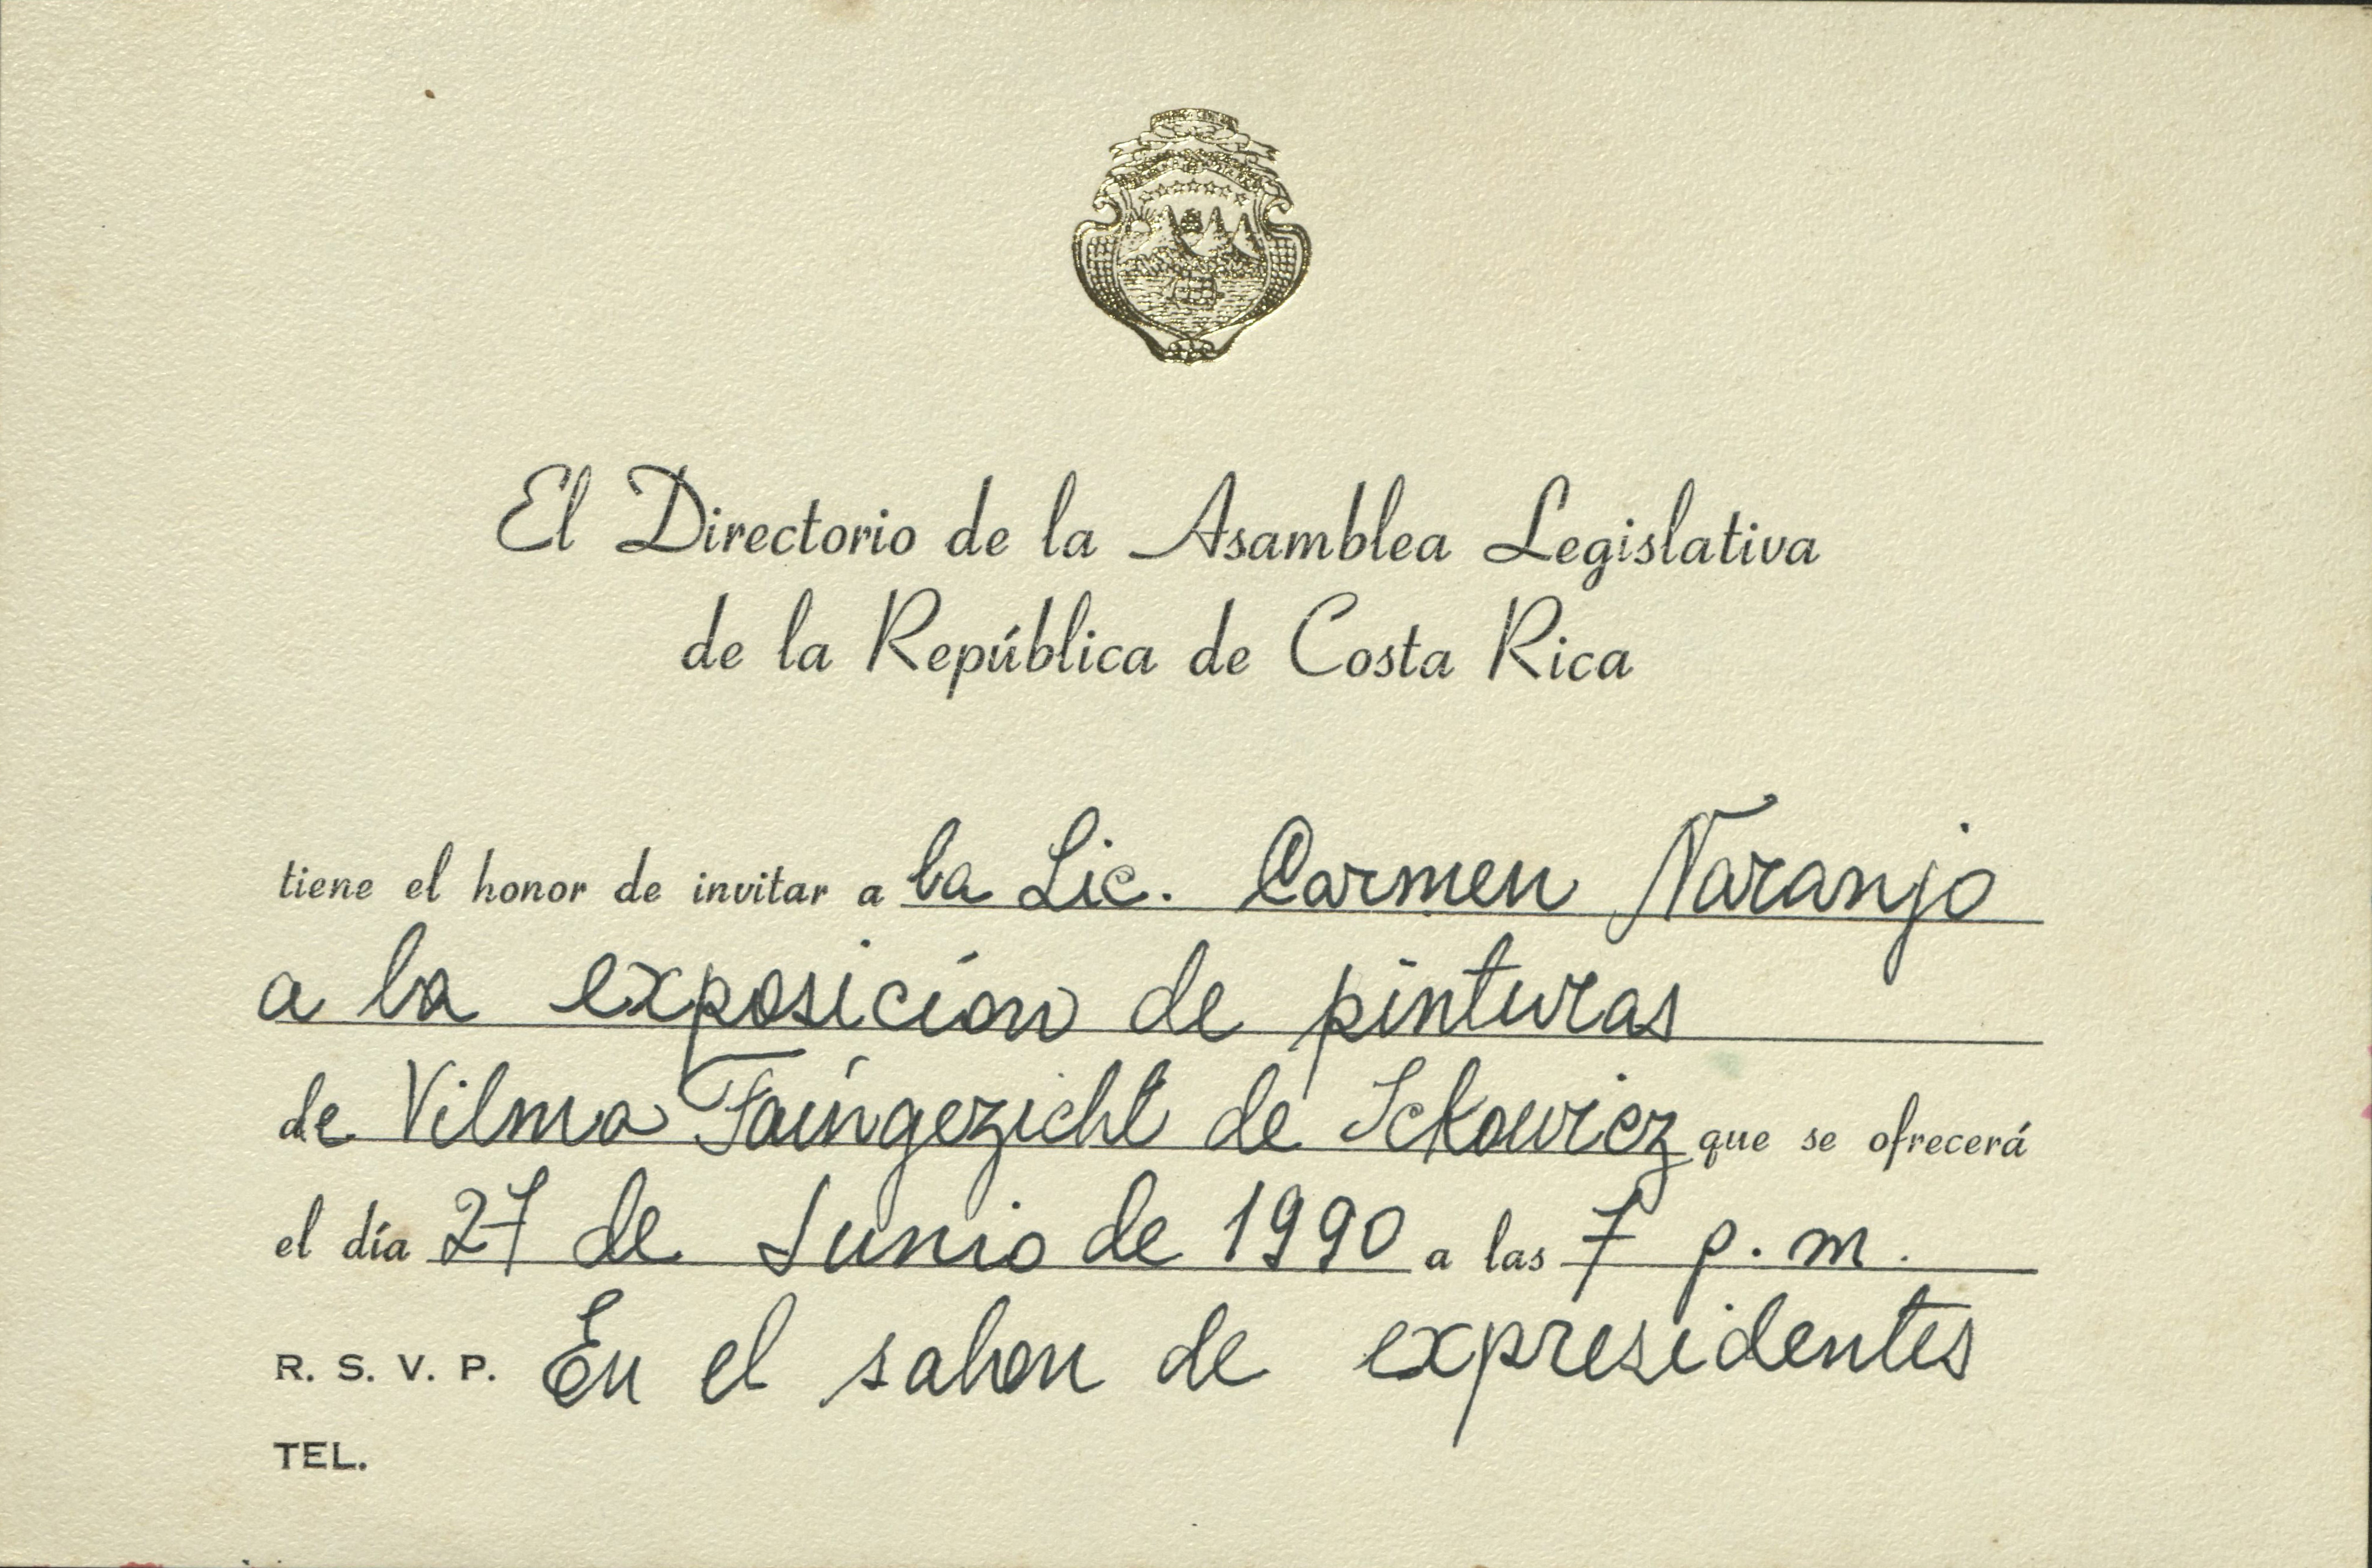 El Directorio de la Asamblea Legislativa
de la República de Costa Rica
tiene el honor de invitar a la Lic. Carmen Naranjo
a la exposición de pinturas
de Vilma Faíngezicht de Ickowicz que se ofrecerá
el día 27 de Junio de 1990 a las 7 p.m.
R. S. V. P. En el salon de expresidentes
TEL.